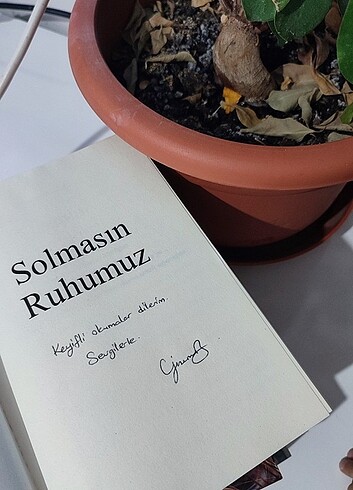 Solmasın
Ruhumuz
Keyifli okumalar dilerim.
Sevgilerle.